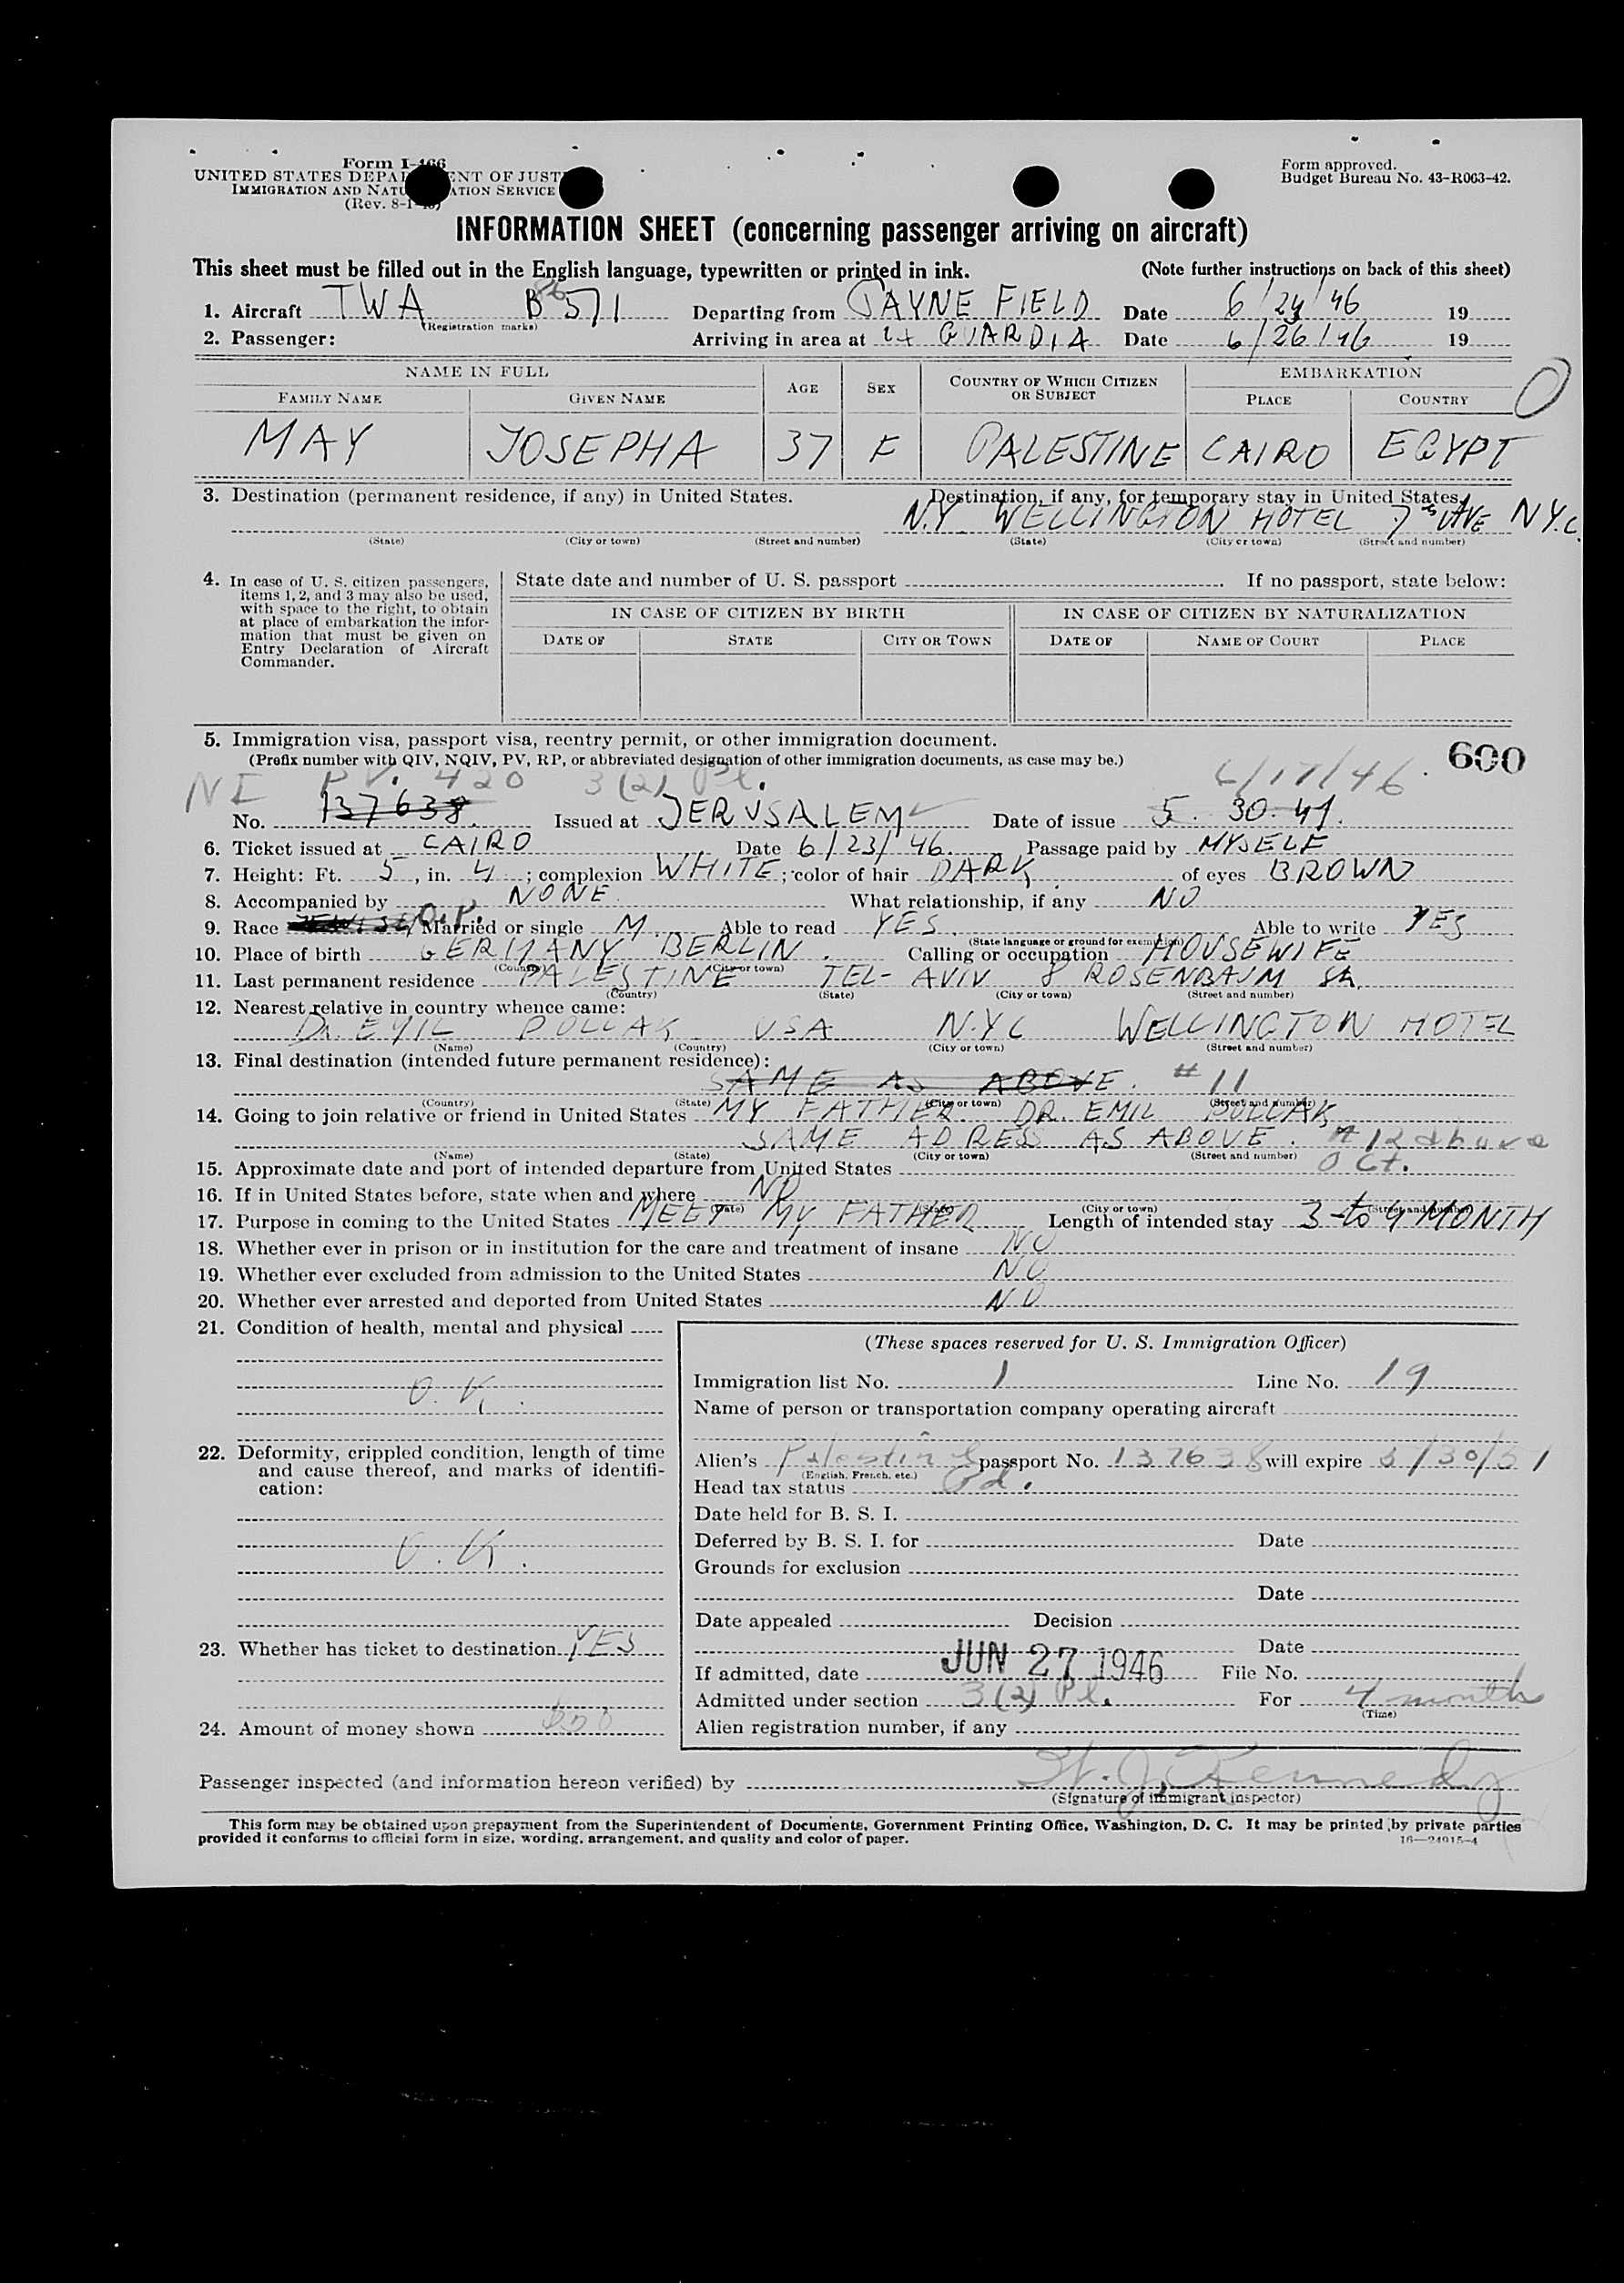 Form I-466
UNITED STATES DEPARTMENT OF JUSTICE
IMMIGRATION AND NATURALIZATION SERVICE
(Rev. 8-1-45)
Form approved.
Budget Bureau No. 43-R063-42.
INFORMATION SHEET (concerning passenger arriving on aircraft)
This sheet must be filled out in the English language, typewritten or printed in ink. (Note further instructions on back of this sheet)
1. Aircraft TWA B 571 Departing from PAYNE FIELD Date 6/24/46 19
(Registration marks)
2. Passenger: Arriving in area at LA GUARDIA Date 6/26/46 19
NAME IN FULL AGE SEX COUNTRY OF WHICH CITIZEN OR SUBJECT EMBARKATION
FAMILY NAME GIVEN NAME PLACE COUNTRY
MAY JOSEPHA 37 F PALESTINE CAIRO EGYPT
3. Destination (permanent residence, if any) in United States. Destination, if any, for temporary stay in United States.
N.Y WELLINGTON HOTEL 7th AVE N.Y.C.
(State) (City or town) (Street and number) (State) (City or town) (Street and number)
4. In case of U. S. citizen passengers, items 1, 2, and 3 may also be used, with space to the right, to obtain at place of embarkation the information that must be given on Entry Declaration of Aircraft Commander.
State date and number of U. S. passport If no passport, state below:
IN CASE OF CITIZEN BY BIRTH IN CASE OF CITIZEN BY NATURALIZATION
DATE OF STATE CITY OR TOWN DATE OF NAME OF COURT PLACE
5. Immigration visa, passport visa, reentry permit, or other immigration document.
(Prefix number with QIV, NQIV, PV, RP, or abbreviated designation of other immigration documents, as case may be.) 600
NI PV. 420 3(2) Pl. 6/17/46
No. 137638. Issued at JERUSALEM Date of issue 5. 30. 41.
6. Ticket issued at CAIRO Date 6/23/46. Passage paid by MYSELF
7. Height: Ft. 5, in. 4; complexion WHITE; color of hair DARK of eyes BROWN
8. Accompanied by NONE What relationship, if any NO
9. Race Married or single M. Able to read YES. Able to write YES
(State language or ground for exemption)
10. Place of birth GERMANY BERLIN. Calling or occupation HOUSEWIFE
(Country) (City or town)
11. Last permanent residence PALESTINE TEL-AVIV 8 ROSENBAUM St.
(Country) (State) (City or town) (Street and number)
12. Nearest relative in country whence came:
Dr. EMIL POLLAK USA N.Y.C WELLINGTON HOTEL
(Name) (Country) (City or town) (Street and number)
13. Final destination (intended future permanent residence):
SAME AS ABOVE. #11
(Country) (State) (City or town) (Street and number)
14. Going to join relative or friend in United States MY FATHER DR. EMIL POLLAK
SAME ADRESS AS ABOVE. #12 above
(Name) (State) (City or town) (Street and number)
15. Approximate date and port of intended departure from United States Oct.
16. If in United States before, state when and where NO
(Date) (State) (City or town) (Street and number)
17. Purpose in coming to the United States MEET MY FATHER Length of intended stay 3 to 4 MONTH
18. Whether ever in prison or in institution for the care and treatment of insane NO
19. Whether ever excluded from admission to the United States NO
20. Whether ever arrested and deported from United States NO
21. Condition of health, mental and physical
O.K.
22. Deformity, crippled condition, length of time and cause thereof, and marks of identification:
O.K.
23. Whether has ticket to destination YES
24. Amount of money shown
(These spaces reserved for U. S. Immigration Officer)
Immigration list No. 1 Line No. 19
Name of person or transportation company operating aircraft
Alien's Palestine passport No. 137638 will expire 5/30/51
(English, French, etc.)
Head tax status Pd.
Date held for B. S. I.
Deferred by B. S. I. for Date
Grounds for exclusion
Date
Date appealed Decision
Date
If admitted, date JUN 27 1946 File No.
Admitted under section 3(2) Pl. For 4 months
(Time)
Alien registration number, if any
Passenger inspected (and information hereon verified) by H. J. Kennedy
(Signature of immigrant inspector)
This form may be obtained upon prepayment from the Superintendent of Documents, Government Printing Office, Washington, D. C. It may be printed by private parties
provided it conforms to official form in size, wording, arrangement, and quality and color of paper. 16—24915-4